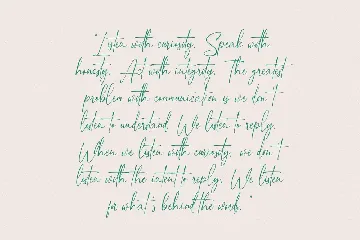 "Listen with curiosity. Speak with
honesty. Act with integrity. The greatest
problem with communication is we don't
listen to understand. We listen to reply.
When we listen with curiosity, we don't
listen with the intent to reply. We listen
for what's behind the words."